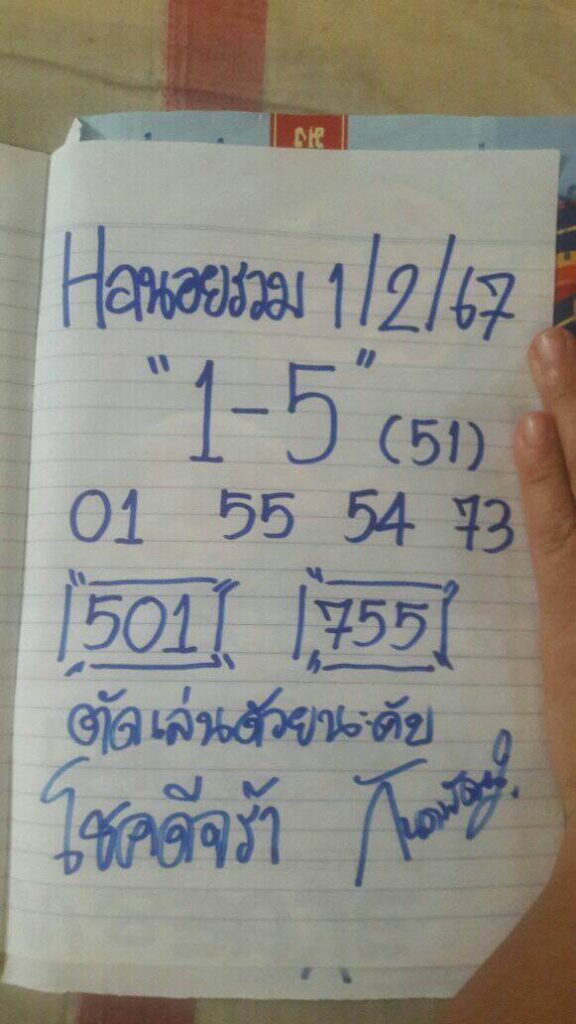 Hานอยรวม 1/2/67
"1-5" (51)
01 55 54 73
501 755
ตัดเล่นด้วยนะคับ
โชคดีจร้า